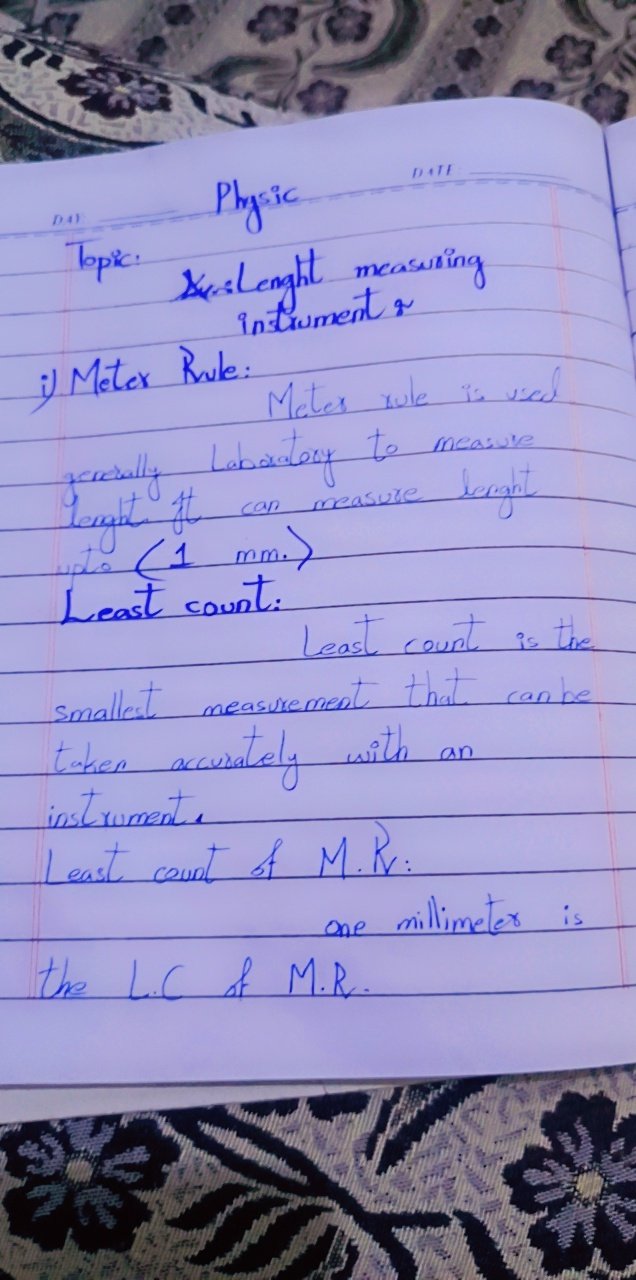 DAY
Physic
DATE
Topic:
Lenght measuring
instrument
i) Meter Rule:
Meter rule is used
generally Laboratory to measure
lenght. It can measure lenght
upto (1 mm.)
Least count:
Least count is the
smallest measurement that can be
taken accurately with an
instrument.
Least count of M.R:
one millimeter is
the L.C of M.R.